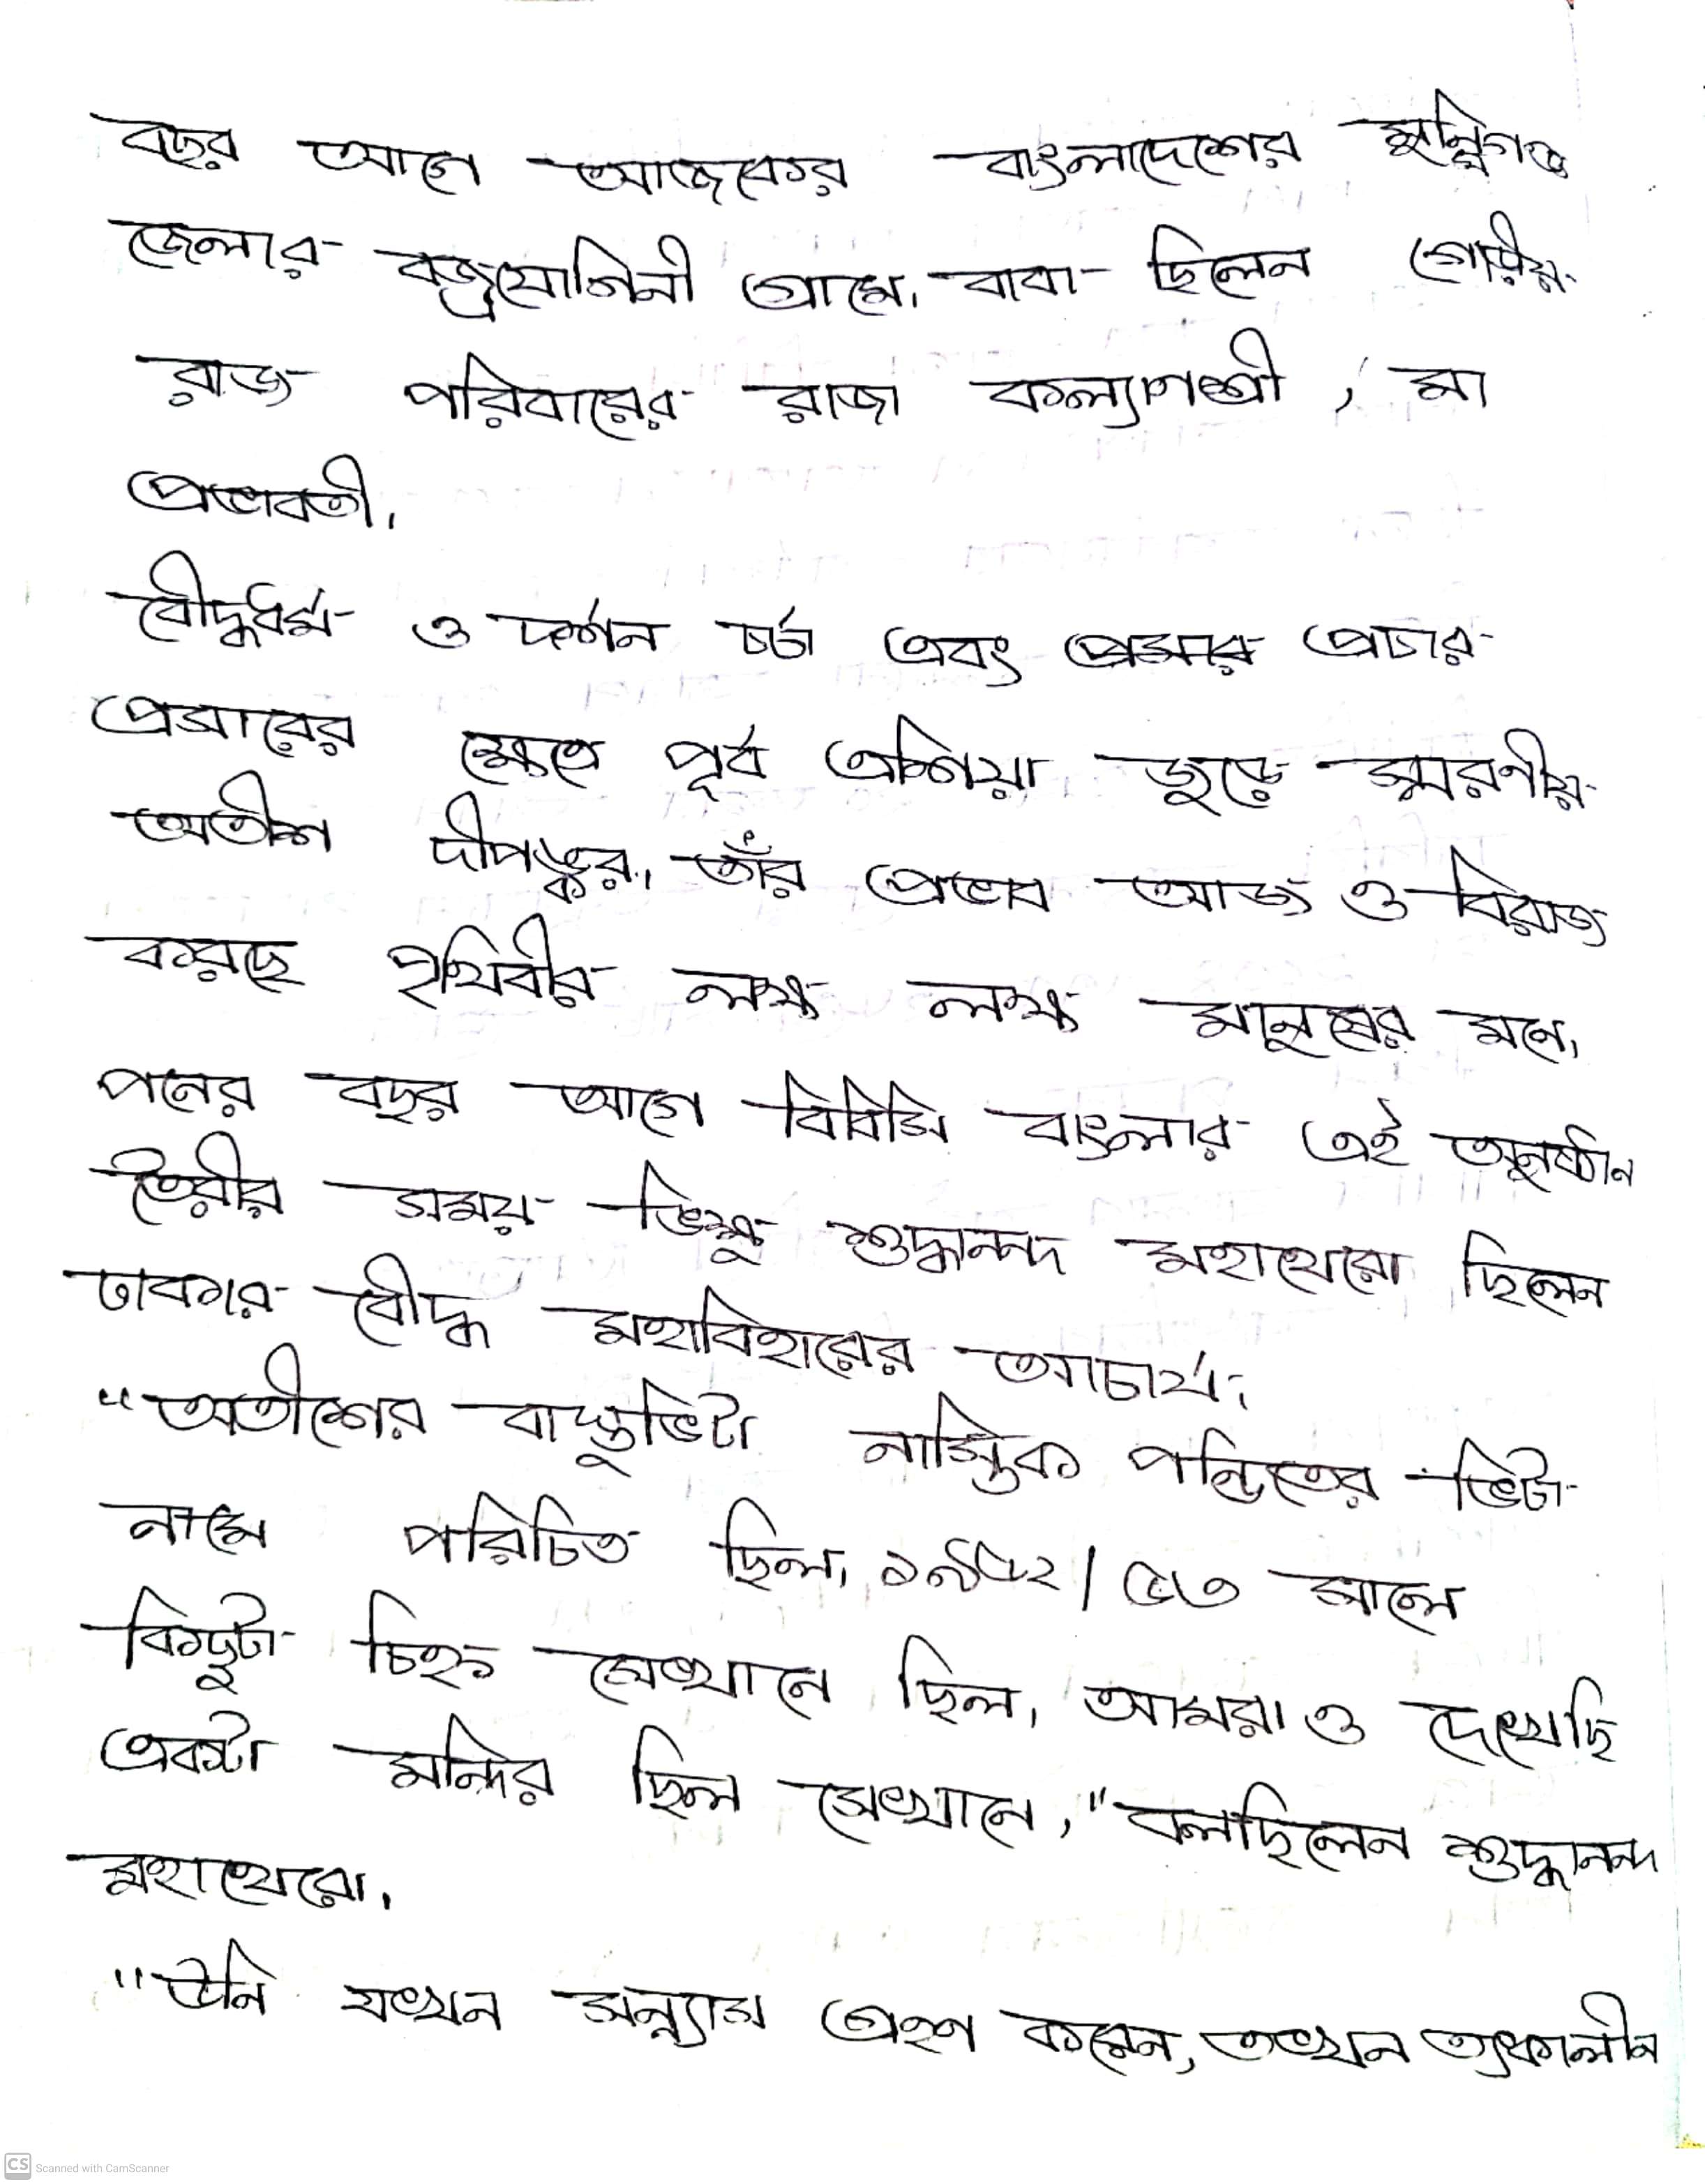 বছর আগে আজকের বাংলাদেশের মুন্সিগঞ্জ
জেলার বজ্রযোগিনী গ্রামে। বাবা ছিলেন গৌড়ীয়
রাজ পরিবারের রাজা কল্যাণশ্রী, মা
প্রভাবতী।
বৌদ্ধধর্ম ও দর্শন চর্চা এবং প্রসার প্রচার
প্রসারের ক্ষেত্রে পূর্ব এশিয়া জুড়ে স্মরণীয়
অতীশ দীপঙ্কর। তাঁর প্রভাব আজ ও বিরাজ
করছে পৃথিবীর লক্ষ লক্ষ মানুষের মনে।
পনের বছর আগে বিবিসি বাংলার এই অনুষ্ঠান
তৈরীর সময় ভিক্ষু শুদ্ধানন্দ মহাথেরো ছিলেন
ঢাকার বৌদ্ধ মহাবিহারের আচার্য।
"অতীশের বাস্তুভিটা নাস্তিক পন্ডিতের ভিটা
নামে পরিচিত ছিল। ১৯৫২/৫৩ সালে
কিছুটা চিহ্ন সেখানে ছিল। আমরা ও দেখেছি
একটা মন্দির ছিল সেখানে," বলছিলেন শুদ্ধানন্দ
মহাথেরো।
"উনি যখন সন্ন্যাস গ্রহণ করেন, তখন তৎকালীন
CS Scanned with CamScanner